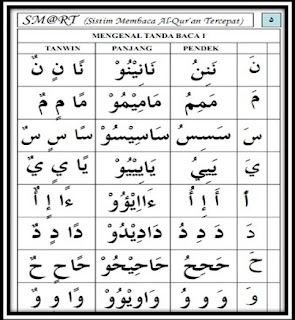 SM@RT (Sistim Membaca Al-Qur'an Tercepat) ٥
MENGENAL TANDA BACA 1
TANWIN PANJANG PENDEK
نَ نَنِنُ نَانِيْنُوْ نًا نٍ نٌ
مَ مَمِمُ مَامِيْمُوْ مًا مٍ مٌ
سَ سَسِسُ سَاسِيْسُوْ سًا سٍ سٌ
يَ يَيِيُ يَايِيْيُوْ يًا يٍ يٌ
أَ أَ إِ أُ ءَاإِيْؤُوْ ءًا إٍ أٌ
دَ دَ دِ دُ دَادِيْدُوْ دًا دٍ دٌ
حَ حَحِحُ حَاحِيْحُوْ حًا حٍ حٌ
وَ وَ وِ وُ وَاوِيْوُوْ وًا وٍ وٌ